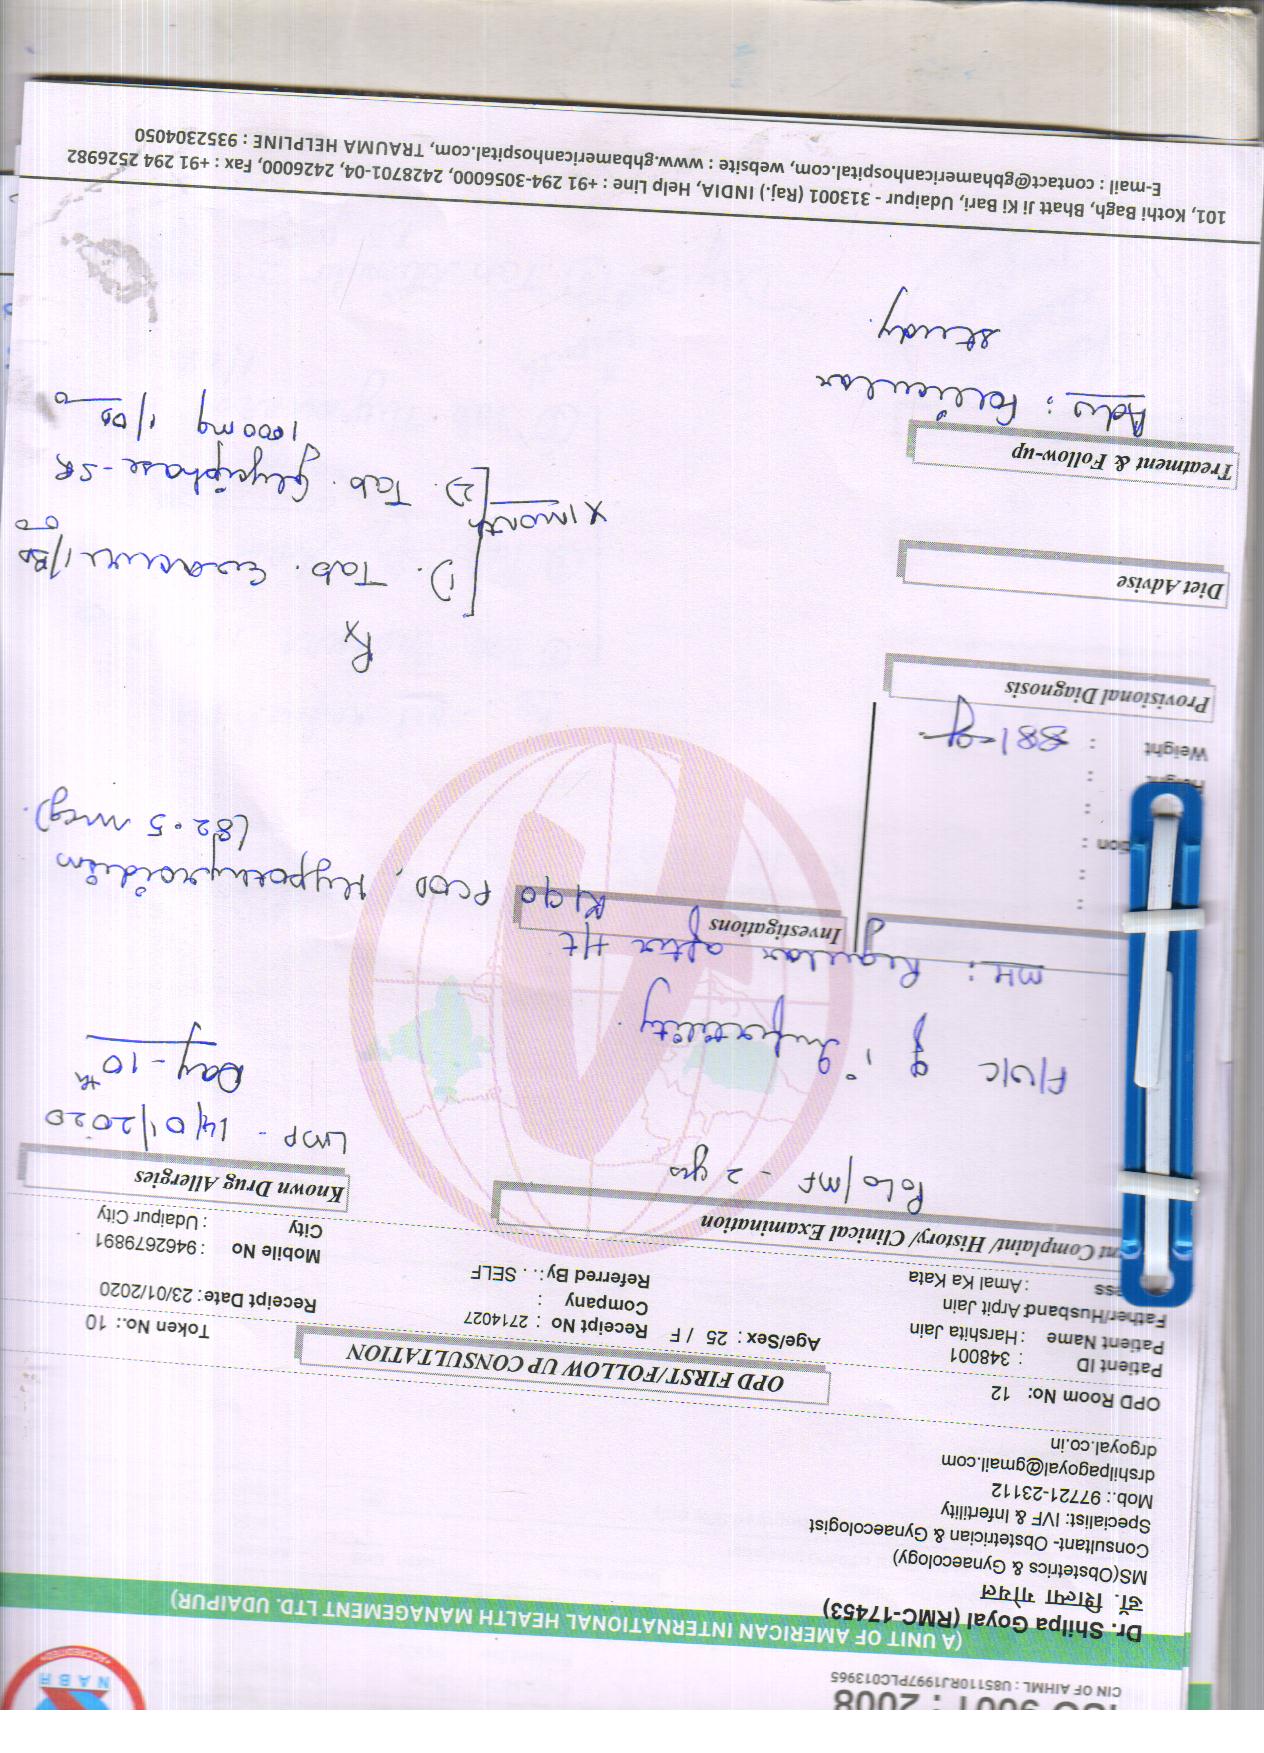 ISO 9001 : 2008
CIN OF AIHML : U85110RJ1997PLC013965
NABH
(A UNIT OF AMERICAN INTERNATIONAL HEALTH MANAGEMENT LTD. UDAIPUR)
Dr. Shilpa Goyal (RMC-17453)
डॉ. शिल्पा गोयल
MS(Obstetrics & Gynaecology)
Consultant- Obstetrician & Gynaecologist
Specialist: IVF & Infertility
Mob.: 97721-23112
drshilpagoyal@gmail.com
drgoyal.co.in
OPD Room No: 12
OPD FIRST/FOLLOW UP CONSULTATION
Token No.: 10
Patient ID : 348001
Patient Name : Harshita Jain
Age/Sex : 25 / F
Receipt No : 2714027
Receipt Date : 23/01/2020
Father/Husband Arpit Jain
Company :
ess : Amal Ka Kata
Referred By : . . SELF
Mobile No : 9462679891
City : Udaipur City
nt Complaint/ History/ Clinical Examination
Known Drug Allergies
PoLo/MF - 2 yrs
LMP - 14/01/2020
Day - 10th
F/U/C of 1° Infertility.
MH: Regular after t/t
Investigations
K/c/o PCOD, Hypothyroidism
(82.5 mcg).
tion :
Height :
Weight : 88 kg
Provisional Diagnosis
Rx
Diet Advise
1). Tab. 1/BD
x 1 month
2). Tab. Glyciphase-SR
1000 mg 1/OD
Treatment & Follow-up
Adv: Follicular
study.
101, Kothi Bagh, Bhatt Ji Ki Bari, Udaipur - 313001 (Raj.) INDIA, Help Line : +91 294-3056000, 2428701-04, 2426000, Fax : +91 294 2526982
E-mail : contact@gbhamericanhospital.com, website : www.gbhamericanhospital.com, TRAUMA HELPLINE : 9352304050